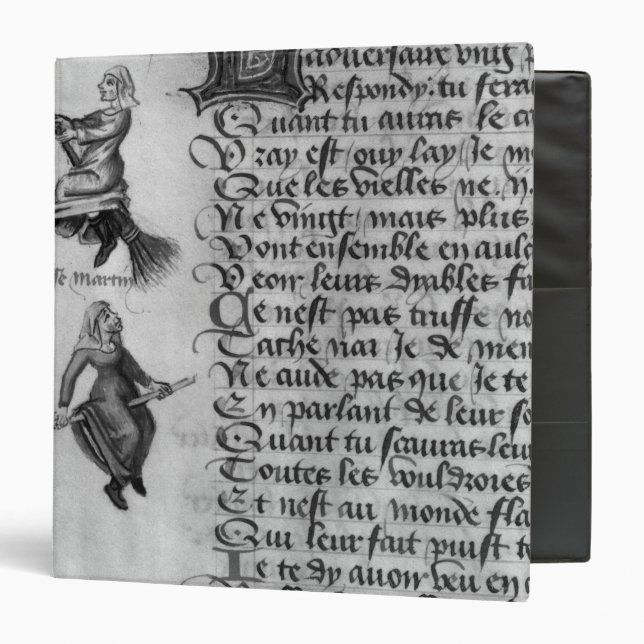 Respondy. tu fera
Quant tu auras le ca
Vray est ouy lay Je m
Que les vielles ne .ij.
Ne vingt mais plus
Vont ensemble en
Veoir leurs dyables fa
Ce nest pas truffe no
Je de men
Ne cude pas que Je te
En parlant de leur so
Quant tu scauras leu
Toutes les vouldroies
Et nest au monde fla
Qui leur fait puist te
Je te dy avoir veu en
se martin